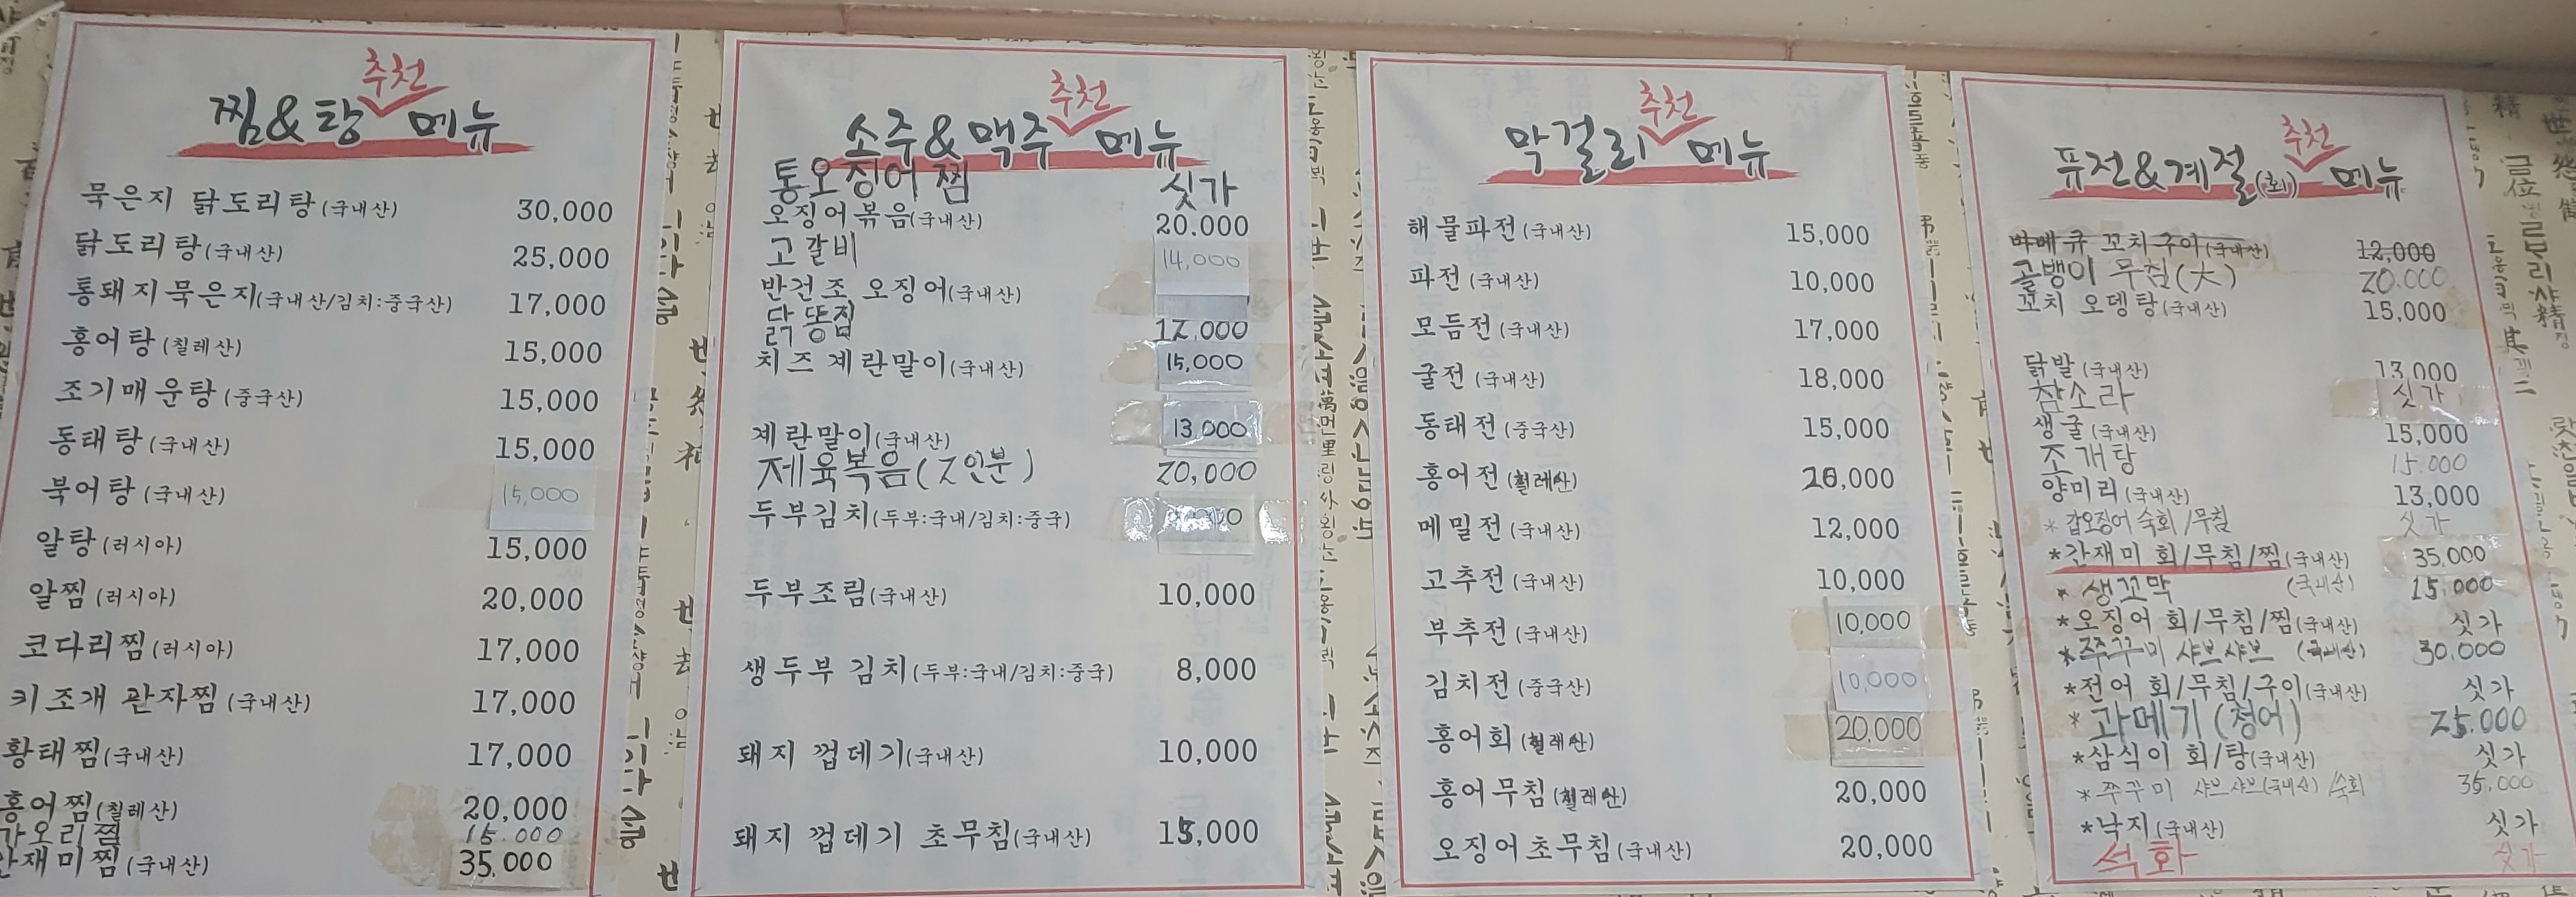 추천
찜&탕 메뉴
묵은지 닭도리탕(국내산) 30,000
닭도리탕(국내산) 25,000
통돼지묵은지(국내산/김치:중국산) 17,000
홍어탕(칠레산) 15,000
조기매운탕(중국산) 15,000
동태탕(국내산) 15,000
북어탕(국내산) 15,000
알탕(러시아) 15,000
알찜(러시아) 20,000
코다리찜(러시아) 17,000
키조개 관자찜(국내산) 17,000
황태찜(국내산) 17,000
홍어찜(칠레산) 20,000
가오리찜 15.000
간재미찜(국내산) 35.000
추천
소주&맥주 메뉴
통오징어찜 싯가
오징어볶음(국내산) 20.000
고갈비 14,000
반건조 오징어(국내산)
닭똥집 12.000
치즈계란말이(국내산) 15,000
계란말이(국내산) 13,000
제육복음(2인분) 20,000
두부김치(두부:국내/김치:중국)
두부조림(국내산) 10,000
생두부 김치(두부:국내/김치:중국) 8,000
돼지 껍데기(국내산) 10,000
돼지 껍데기 초무침(국내산) 15,000
추천
막걸리 메뉴
해물파전(국내산) 15,000
파전(국내산) 10,000
모듬전(국내산) 17,000
굴전(국내산) 18,000
동태전(중국산) 15,000
홍어전(칠레산) 20,000
메밀전(국내산) 12,000
고추전(국내산) 10,000
부추전(국내산) 10,000
김치전(중국산) 10,000
홍어회(칠레산) 20,000
홍어무침(칠레산) 20,000
오징어초무침(국내산) 20,000
추천
퓨전&계절(회) 메뉴
바베큐 꼬치구이(국내산) 12,000
골뱅이 무침(大) 20.000
꼬치 오뎅탕(국내산) 15,000
닭발(국내산) 13,000
참소라 싯가
생굴(국내산) 15,000
조개탕 15.000
양미리(국내산) 13,000
*갑오징어 숙회/무침 싯가
*간재미 회/무침/찜(국내산) 35,000
*생꼬막 (국내산) 15.000
*오징어 회/무침/찜(국내산) 싯가
*쭈꾸미 샤브샤브 (국내산) 30.000
*전어 회/무침/구이(국내산) 싯가
*과메기(청어) 25.000
*삼식이 회/탕(국내산) 싯가
*쭈꾸미 샤브샤브(국내산)/숙회 35,000
*낙지(국내산) 싯가
석화 싯가